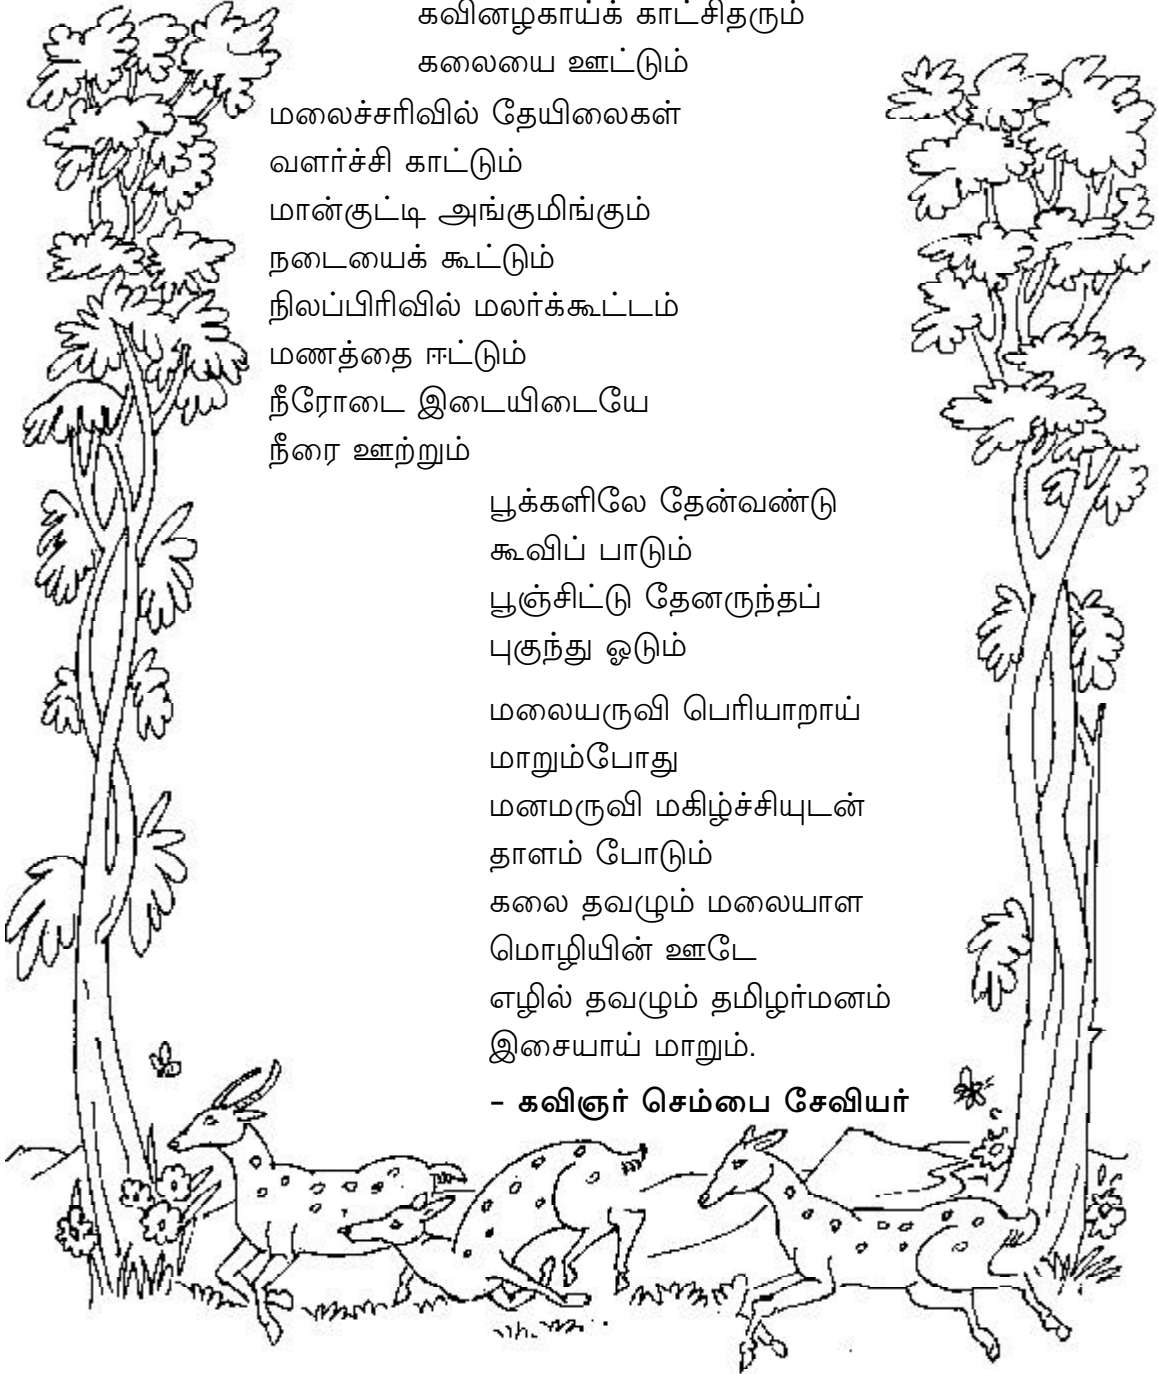 கவினழகாய்க் காட்சிதரும்
கலையை ஊட்டும்
மலைச்சரிவில் தேயிலைகள்
வளர்ச்சி காட்டும்
மான்குட்டி அங்குமிங்கும்
நடையைக் கூட்டும்
நிலப்பிரிவில் மலர்க்கூட்டம்
மணத்தை ஈட்டும்
நீரோடை இடையிடையே
நீரை ஊற்றும்
பூக்களிலே தேன்வண்டு
கூவிப் பாடும்
பூஞ்சிட்டு தேனருந்தப்
புகுந்து ஓடும்
மலையருவி பெரியாறாய்
மாறும்போது
மனமருவி மகிழ்ச்சியுடன்
தாளம் போடும்
கலை தவழும் மலையாள
மொழியின் ஊடே
எழில் தவழும் தமிழர்மனம்
இசையாய் மாறும்.
– கவிஞர் செம்பை சேவியர்